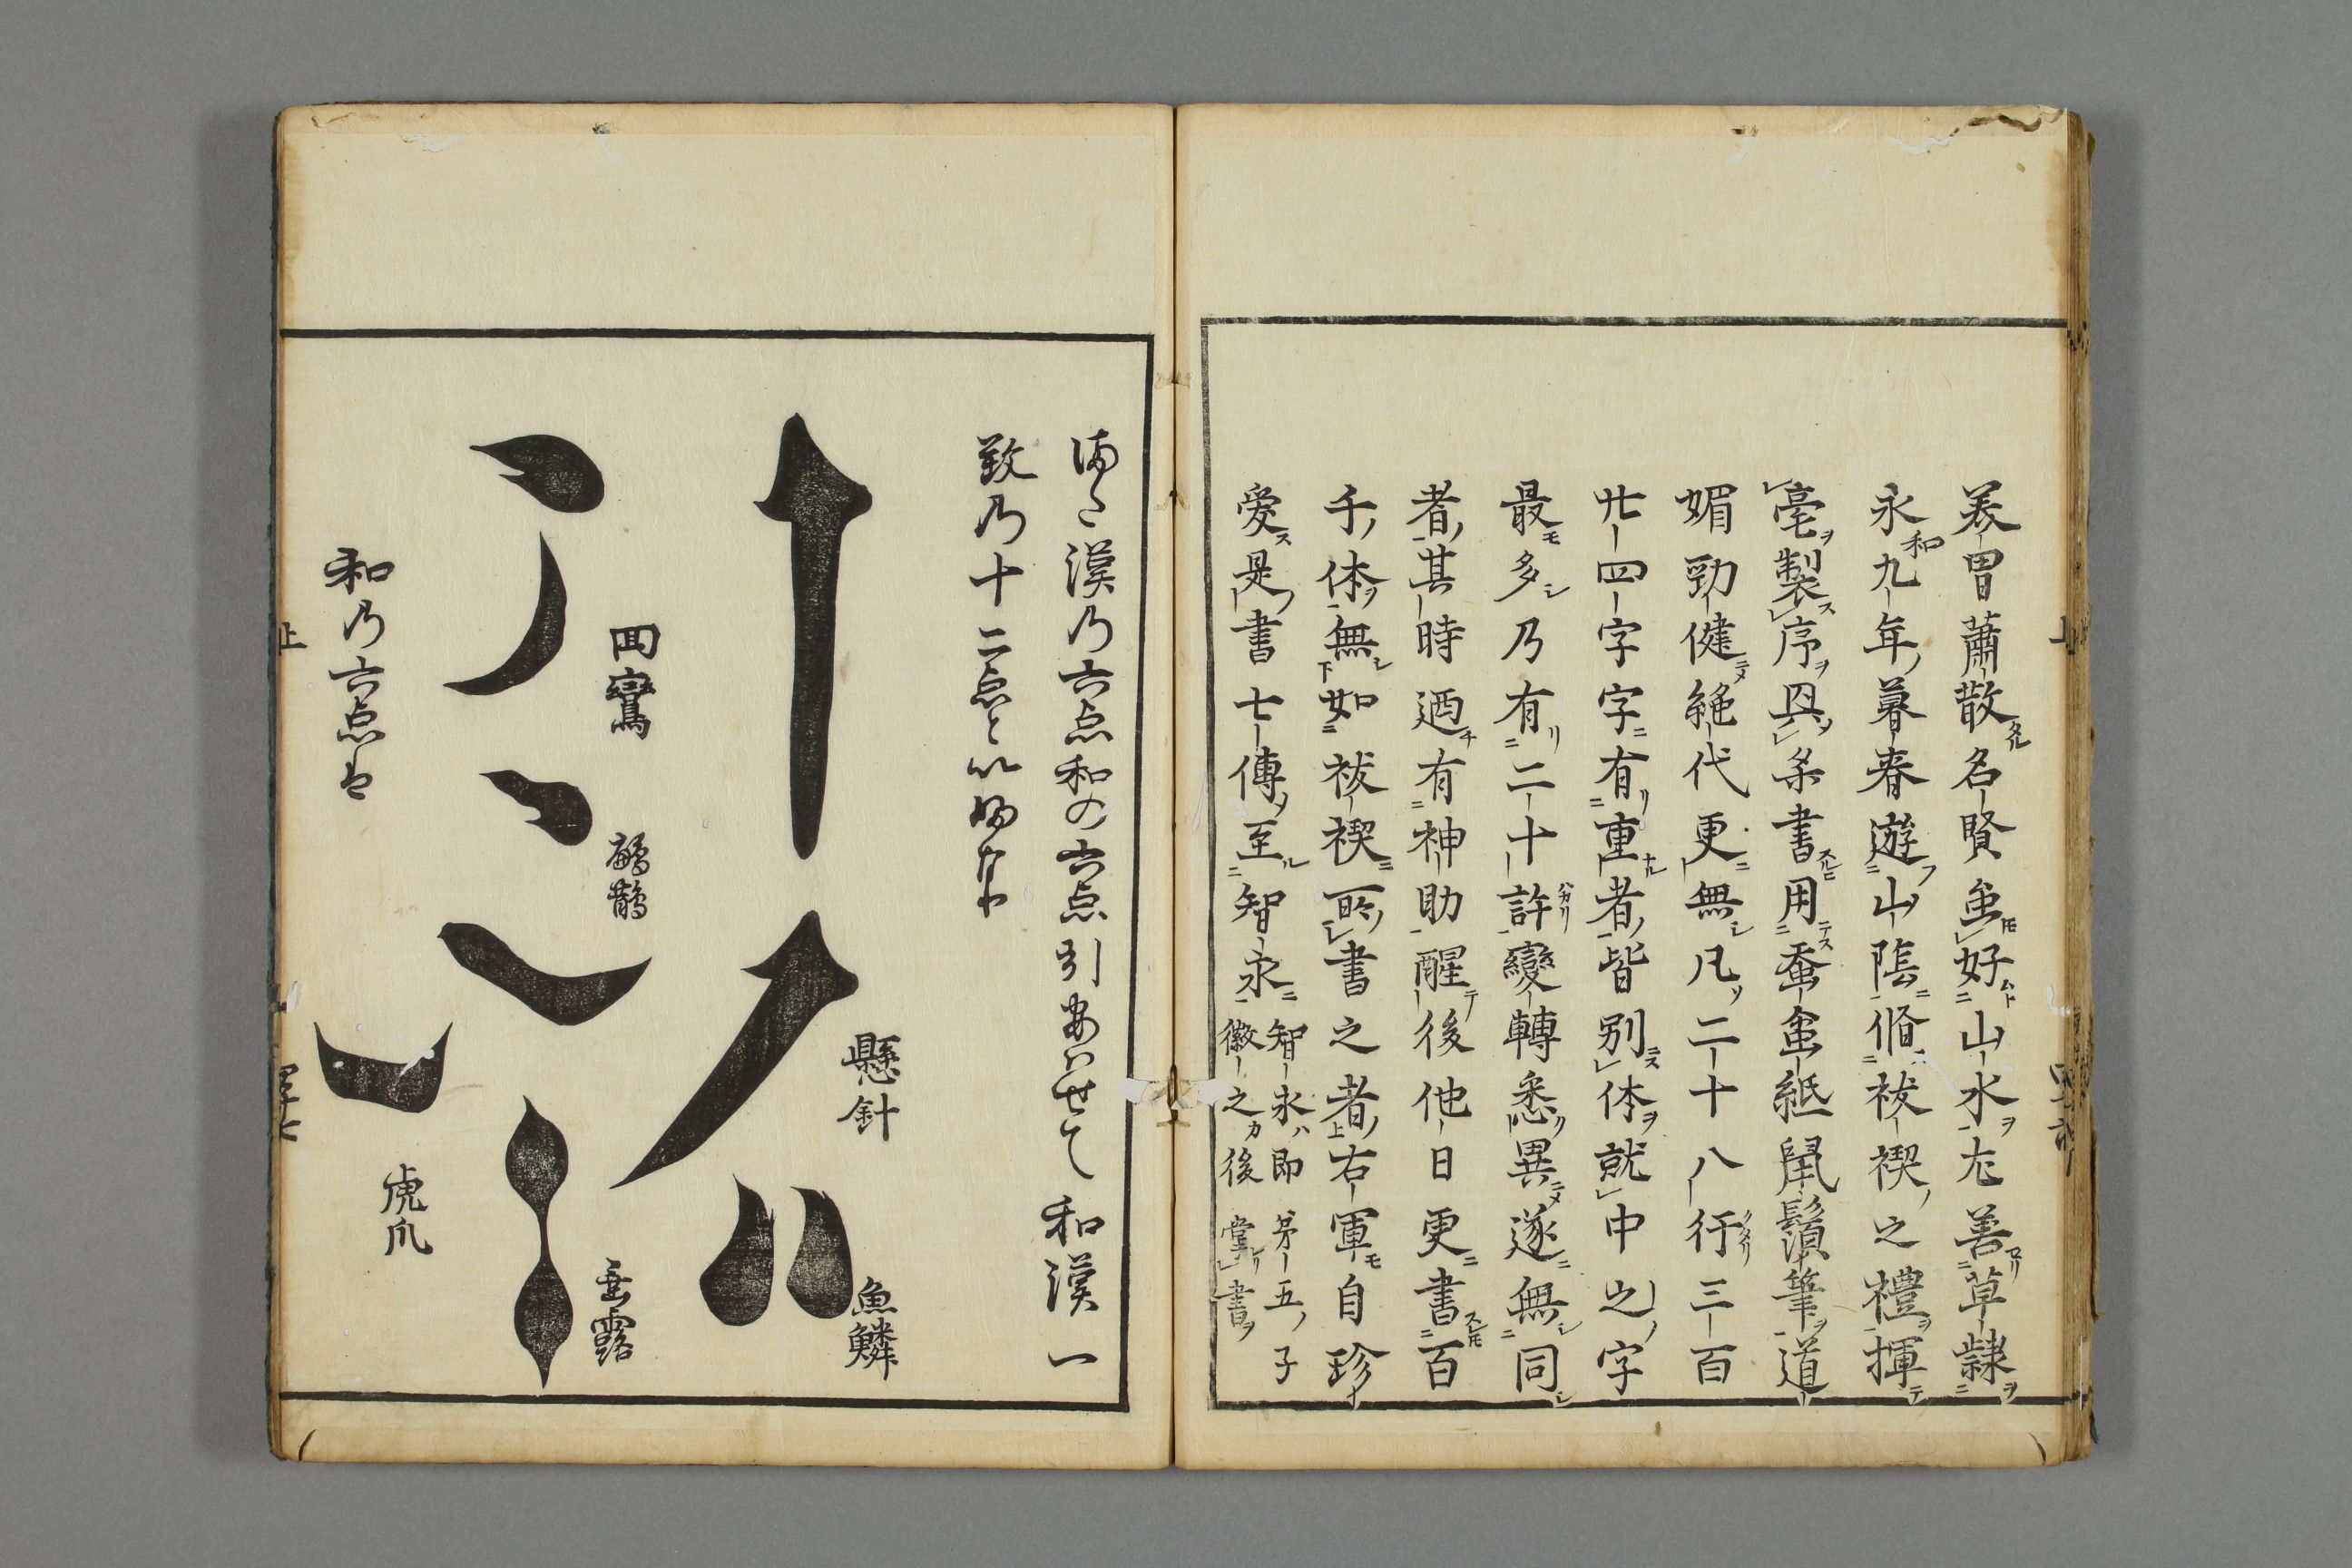 美冑蕭散名賢虽好山水尤善草隷
永和九年暮春遊山陰脩祓禊之禮揮
毫製序興条書用蚕蠒紙鼠鬚筆道
媚勁健絶代更無凡二十八行三百
廿四字字有重者皆別体就中之字
最多乃有二十許變轉悉異遂無同
者其時廼有神助醒後他日更書百
千体無如祓禊所書之者右軍自珍
愛是書七傳至智永
智永ハ即第五子
徽之カ後掌書
漢乃六点和の六点引あハせて和漢一
致乃十二点といふなり
懸針
魚鱗
回鸞
鷸鵲
垂露
虎爪
和乃六点は
上